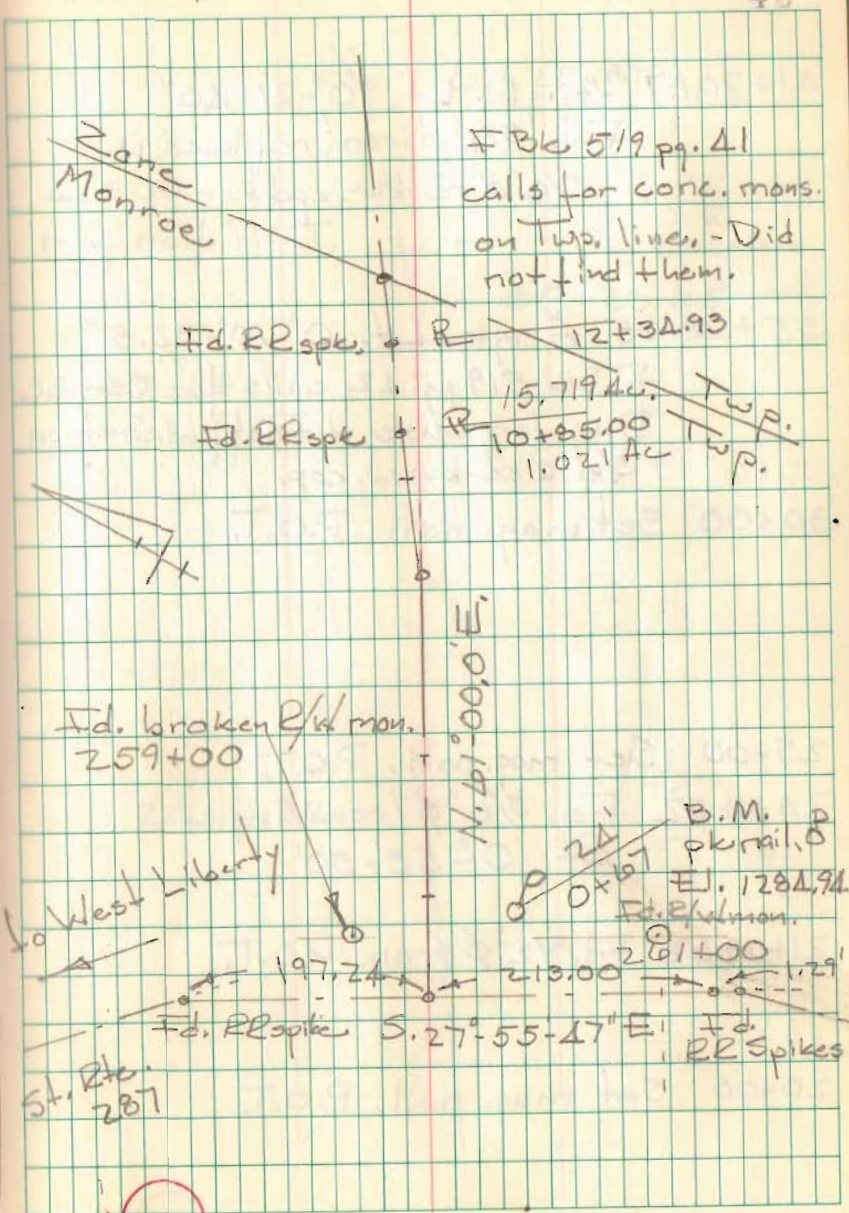 Zane
Monroe
F Bk 519 pg. 41
calls for conc. mons.
on Twp. line. - Did
not find them.
Fd. RR spk.
PL 12+34.93
15.719 Ac.
Twp.
Fd. RR spk
PL 10+85.00
Twp.
1.021 Ac
N. 61°-00.0' E.
Fd. broken R/W mon.
259+00
B.M.
pk nail, P
24'
0+67
El. 1284.94
To West Liberty
Fd. R/W mon.
261+00
197.24
213.00
1.29'
Fd. RR spike
S. 27°-55'-47" E.
Fd.
RR Spikes
St. Rte.
287